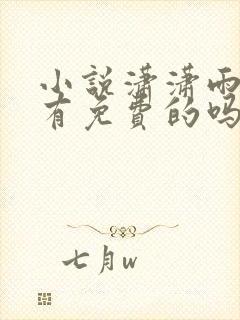 小说潇潇雨
有免费的吗
七月w